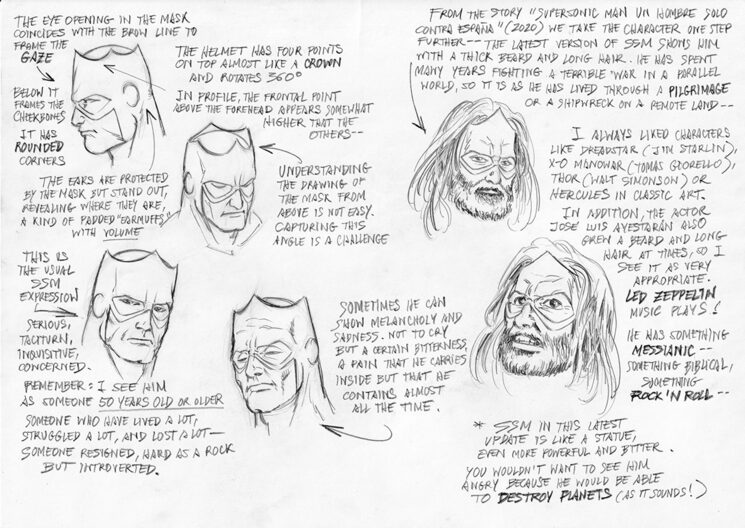 THE EYE OPENING IN THE MASK
COINCIDES WITH THE BROW LINE TO
FRAME THE
GAZE
BELOW IT
FRAMES THE
CHEEKBONES
IT HAS
ROUNDED
CORNERS
THE HELMET HAS FOUR POINTS
ON TOP ALMOST LIKE A CROWN
AND ROTATES 360º
IN PROFILE, THE FRONTAL POINT
ABOVE THE FOREHEAD APPEARS SOMEWHAT
HIGHER THAT THE
OTHERS--
THE EARS ARE PROTECTED
BY THE MASK BUT STAND OUT,
REVEALING WHERE THEY ARE,
A KIND OF PADDED "EARMUFFS"
WITH VOLUME
UNDERSTANDING
THE DRAWING OF
THE MASK FROM
ABOVE IS NOT EASY.
CAPTURING THIS
ANGLE IS A CHALLENGE
THIS IS
THE USUAL
SSM
EXPRESSION
SERIOUS,
TACITURN,
INQUISITIVE,
CONCERNED.
REMEMBER: I SEE HIM
AS SOMEONE 50 YEARS OLD OR OLDER
SOMEONE WHO HAVE LIVED A LOT,
STRUGGLED A LOT, AND LOST A LOT--
SOMEONE RESIGNED, HARD AS A ROCK
BUT INTROVERTED.
SOMETIMES HE CAN
SHOW MELANCHOLY AND
SADNESS. NOT TO CRY
BUT A CERTAIN BITTERNESS,
A PAIN THAT HE CARRIES
INSIDE BUT THAT HE
CONTAINS ALMOST
ALL THE TIME.
FROM THE STORY "SUPERSONIC MAN UN HOMBRE SOLO
CONTRA ESPAÑA" (2020) WE TAKE THE CHARACTER ONE STEP
FURTHER-- THE LATEST VERSION OF SSM SHOWS HIM
WITH A THICK BEARD AND LONG HAIR. HE HAS SPENT
MANY YEARS FIGHTING A TERRIBLE WAR IN A PARALLEL
WORLD, SO IT IS AS HE HAS LIVED THROUGH A PILGRIMAGE
OR A SHIPWRECK ON A REMOTE LAND--
I ALWAYS LIKED CHARACTERS
LIKE DREADSTAR (JIM STARLIN),
X-O MANOWAR (TOMAS GIORELLO),
THOR (WALT SIMONSON) OR
HERCULES IN CLASSIC ART.
IN ADDITION, THE ACTOR
JOSE LUIS AYESTARÁN ALSO
GREW A BEARD AND LONG
HAIR AT TIMES, SO I
SEE IT AS VERY
APPROPRIATE.
LED ZEPPELIN
MUSIC PLAYS!
HE HAS SOMETHING
MESSIANIC--
SOMETHING BIBLICAL,
SOMETHING
ROCK'N ROLL--
* SSM IN THIS LATEST
UPDATE IS LIKE A STATUE,
EVEN MORE POWERFUL AND BITTER.
YOU WOULDN'T WANT TO SEE HIM
ANGRY BECAUSE HE WOULD BE ABLE
TO DESTROY PLANETS (AS IT SOUNDS!)